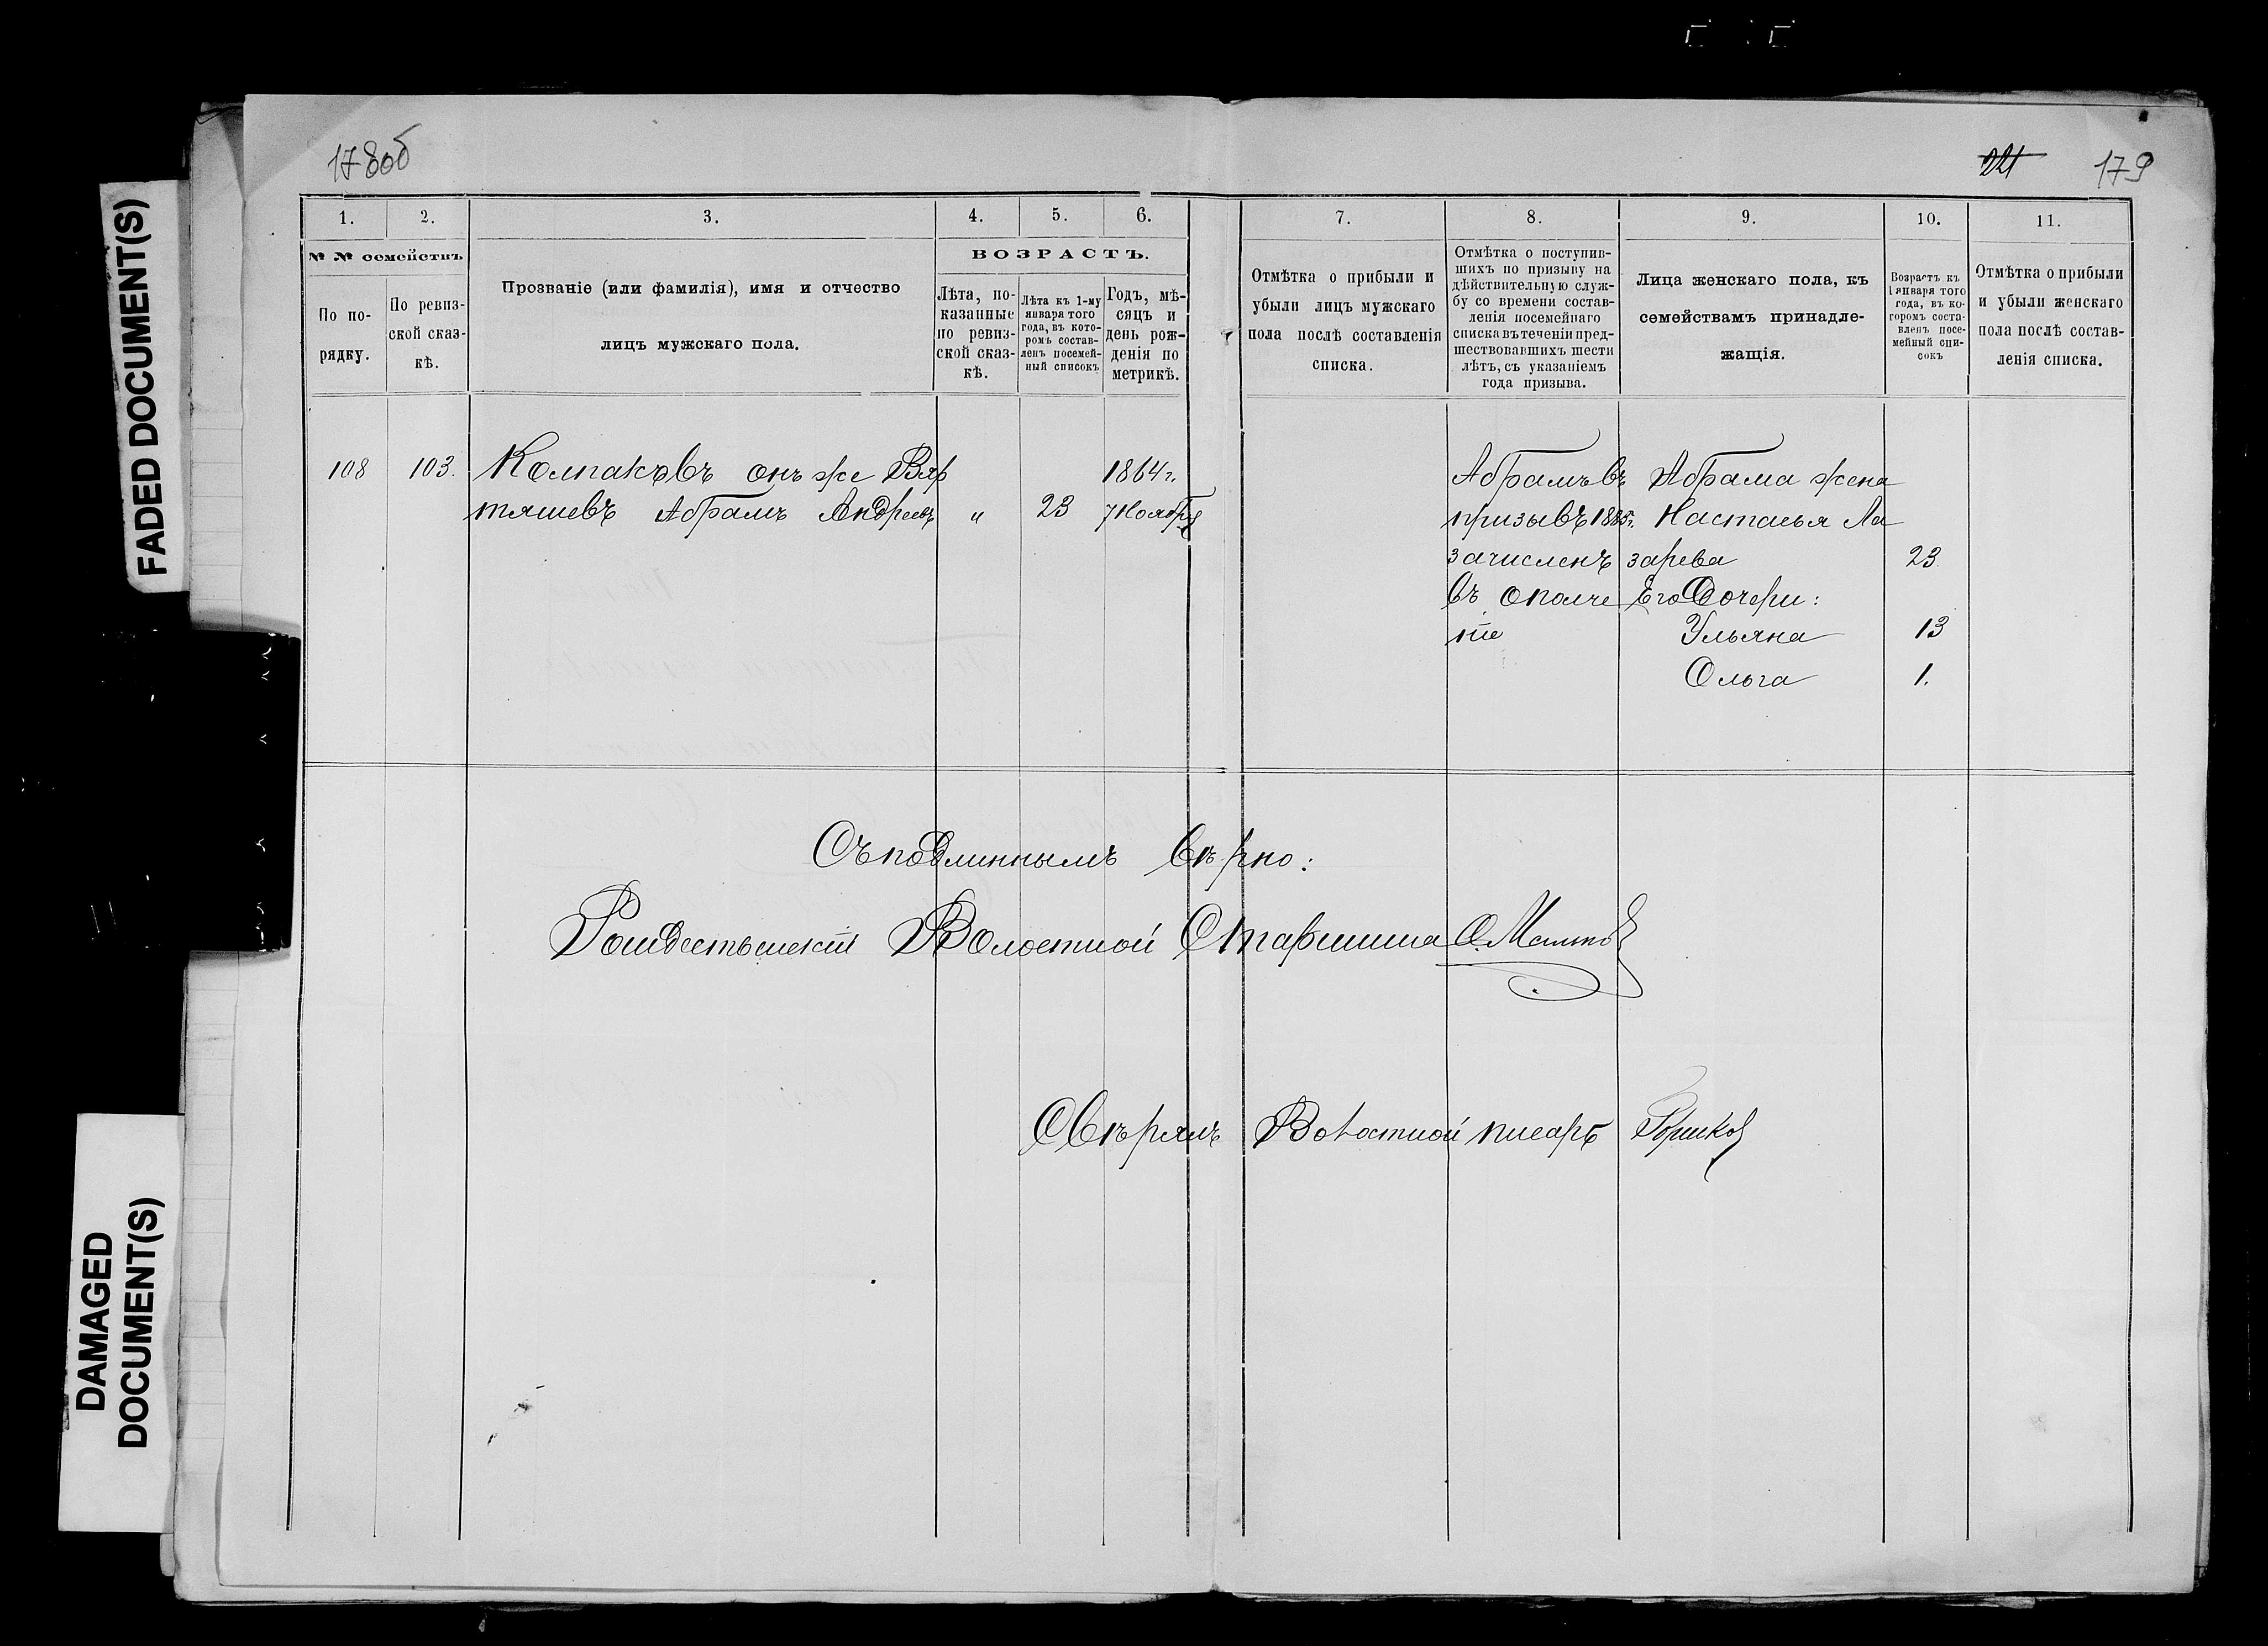 FADED DOCUMENT(S)
DAMAGED
DOCUMENT(S)
178об
221 179
1. 2. 3. 4. 5. 6. 7. 8. 9. 10. 11.
№ № семействъ
По по-
рядку.
По ревиз-
ской сказ-
кѣ.
Прозваніе (или фамилія), имя и отчество
лицъ мужскаго пола.
ВОЗРАСТЪ.
Лѣта, по-
казанные
по ревиз-
ской сказ-
кѣ.
Лѣта къ 1-му
января того
года, въ кото-
ромъ состав-
ленъ посемей-
ный списокъ
Годъ, мѣ-
сяцъ и
день рож-
денія по
метрикѣ.
Отмѣтка о прибыли и
убыли лицъ мужскаго
пола послѣ составленія
списка.
Отмѣтка о поступив-
шихъ по призыву на
дѣйствительную служ-
бу со времени состав-
ленія посемейнаго
списка въ теченіи пред-
шествовавшихъ шести
лѣтъ, съ указаніемъ
года призыва.
Лица женскаго пола, къ
семействамъ принадле-
жащія.
Возрастъ къ
1 января того
года, въ ко-
торомъ соста-
вленъ посе-
мейный спи-
сокъ
Отмѣтка о прибыли
и убыли женскаго
пола послѣ состав-
ленія списка.
108 103. Колпаковъ онъ же Вяр
тяшевъ Абрамъ Андреевъ " 23
1864 г.
7 Ноября
Абрамъ въ
призывъ 1885 г.
зачисленъ
въ ополче
ніе
Абрама жена
Настасья Ла
зарева 23
Его Дочери:
Ульяна 13
Ольга 1.
Съ подлиннымъ вѣрно:
Волостной Старшина
Свѣрялъ Волостной писарь